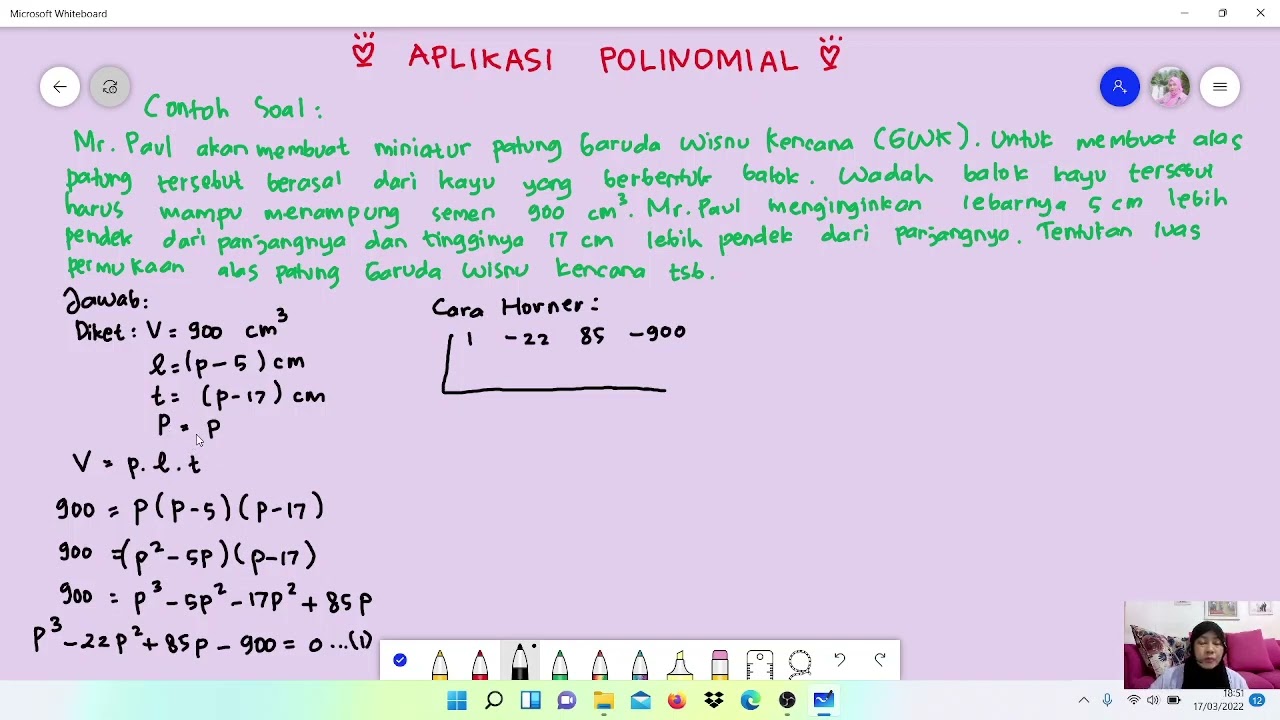 Microsoft Whiteboard
APLIKASI POLINOMIAL
Contoh Soal :
Mr. Paul akan membuat miniatur patung Garuda Wisnu Kencana (GWK). Untuk membuat alas
patung tersebut berasal dari kayu yang berbentuk balok. Wadah balok kayu tersebut
harus mampu menampung semen 900 cm³. Mr. Paul menginginkan lebarnya 5 cm lebih
pendek dari panjangnya dan tingginya 17 cm lebih pendek dari panjangnya. Tentukan luas
permukaan alas patung Garuda Wisnu Kencana tsb.
Jawab:
Diket : V = 900 cm³
l = (p - 5) cm
t = (p - 17) cm
P = p
V = p . l . t
900 = p (p - 5) (p - 17)
900 = (p² - 5p) (p - 17)
900 = p³ - 5p² - 17p² + 85p
p³ - 22p² + 85p - 900 = 0 ... (1)
Cara Horner :
1 -22 85 -900
18:51
17/03/2022
12